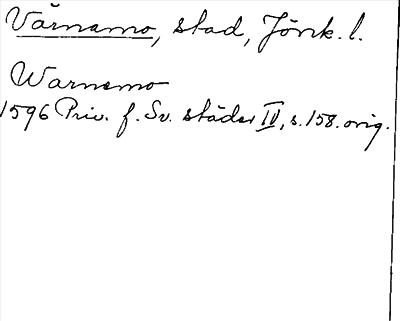 Värnamo, stad, Jönk. l.
Warnemo
1596 Priv. f. Sv. städer IV, s. 158. orig.